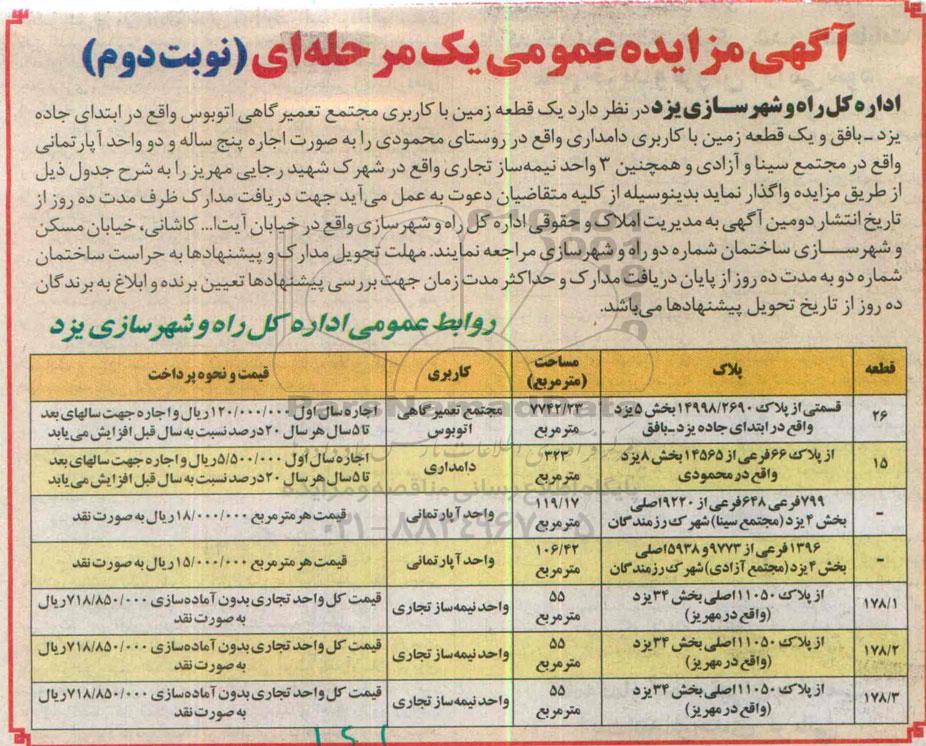 آگهی مزایده عمومی یک مرحله‌ای (نوبت دوم)
اداره کل راه و شهرسازی یزد در نظر دارد یک قطعه زمین با کاربری مجتمع تعمیرگاهی اتوبوس واقع در ابتدای جاده
یزد ـ بافق و یک قطعه زمین با کاربری دامداری واقع در روستای محمودی را به صورت اجاره پنج ساله و دو واحد آپارتمانی
واقع در مجتمع سینا و آزادی و همچنین ۳ واحد نیمه‌ساز تجاری واقع در شهرک شهید رجایی مهریز را به شرح جدول ذیل
از طریق مزایده واگذار نماید بدینوسیله از کلیه متقاضیان دعوت به عمل می‌آید جهت دریافت مدارک ظرف مدت ده روز از
تاریخ انتشار دومین آگهی به مدیریت املاک و حقوقی اداره کل راه و شهرسازی واقع در خیابان آیت‌ا... کاشانی، خیابان مسکن
و شهرسازی ساختمان شماره دو راه و شهرسازی مراجعه نمایند. مهلت تحویل مدارک و پیشنهادها به حراست ساختمان
شماره دو به مدت ده روز از پایان دریافت مدارک و حداکثر مدت زمان جهت بررسی پیشنهادها تعیین برنده و ابلاغ به برندگان
ده روز از تاریخ تحویل پیشنهادها می‌باشد.
روابط عمومی اداره کل راه و شهرسازی یزد
قطعه پلاک مساحت (مترمربع) کاربری قیمت و نحوه پرداخت
۲۶ قسمتی از پلاک ۱۴۹۹۸/۲۶۹۰ بخش ۵ یزد ۷۷۴۲/۲۳ مجتمع تعمیرگاهی اجاره سال اول ۱۲۰/۰۰۰/۰۰۰ ریال و اجاره جهت سالهای بعد
واقع در ابتدای جاده یزد ـ بافق مترمربع اتوبوس تا ۵ سال هر سال ۲۰ درصد نسبت به سال قبل افزایش می‌یابد
۱۵ از پلاک ۶۶ فرعی از ۱۴۵۶۵ بخش ۸ یزد ۳۲۳ دامداری اجاره سال اول ۵/۵۰۰/۰۰۰ ریال و اجاره جهت سالهای بعد
واقع در محمودی مترمربع تا ۵ سال هر سال ۲۰ درصد نسبت به سال قبل افزایش می‌یابد
- ۷۹۹ فرعی ۶۴۸ فرعی از ۹۲۲۰ اصلی ۱۱۹/۱۷ واحد آپارتمانی قیمت هر مترمربع ۱۸/۰۰۰/۰۰۰ ریال به صورت نقد
بخش ۴ یزد (مجتمع سینا) شهرک رزمندگان مترمربع
- ۱۳۹۶ فرعی از ۹۷۷۳ و ۵۹۳۸ اصلی ۱۰۶/۴۲ واحد آپارتمانی قیمت هر مترمربع ۱۵/۰۰۰/۰۰۰ ریال به صورت نقد
بخش ۴ یزد (مجتمع آزادی) شهرک رزمندگان مترمربع
۱۷۸/۱ از پلاک ۱۱۰۵۰ اصلی بخش ۳۴ یزد ۵۵ واحد نیمه‌ساز تجاری قیمت کل واحد تجاری بدون آماده‌سازی ۷۱۸/۸۵۰/۰۰۰ ریال
(واقع در مهریز) مترمربع به صورت نقد
۱۷۸/۲ از پلاک ۱۱۰۵۰ اصلی بخش ۳۴ یزد ۵۵ واحد نیمه‌ساز تجاری قیمت کل واحد تجاری بدون آماده‌سازی ۷۱۸/۸۵۰/۰۰۰ ریال
(واقع در مهریز) مترمربع به صورت نقد
۱۷۸/۳ از پلاک ۱۱۰۵۰ اصلی بخش ۳۴ یزد ۵۵ واحد نیمه‌ساز تجاری قیمت کل واحد تجاری بدون آماده‌سازی ۷۱۸/۸۵۰/۰۰۰ ریال
(واقع در مهریز) مترمربع به صورت نقد
ParsNamadData
۰۲۱-۸۸۳۴۹۶۷۰-۵